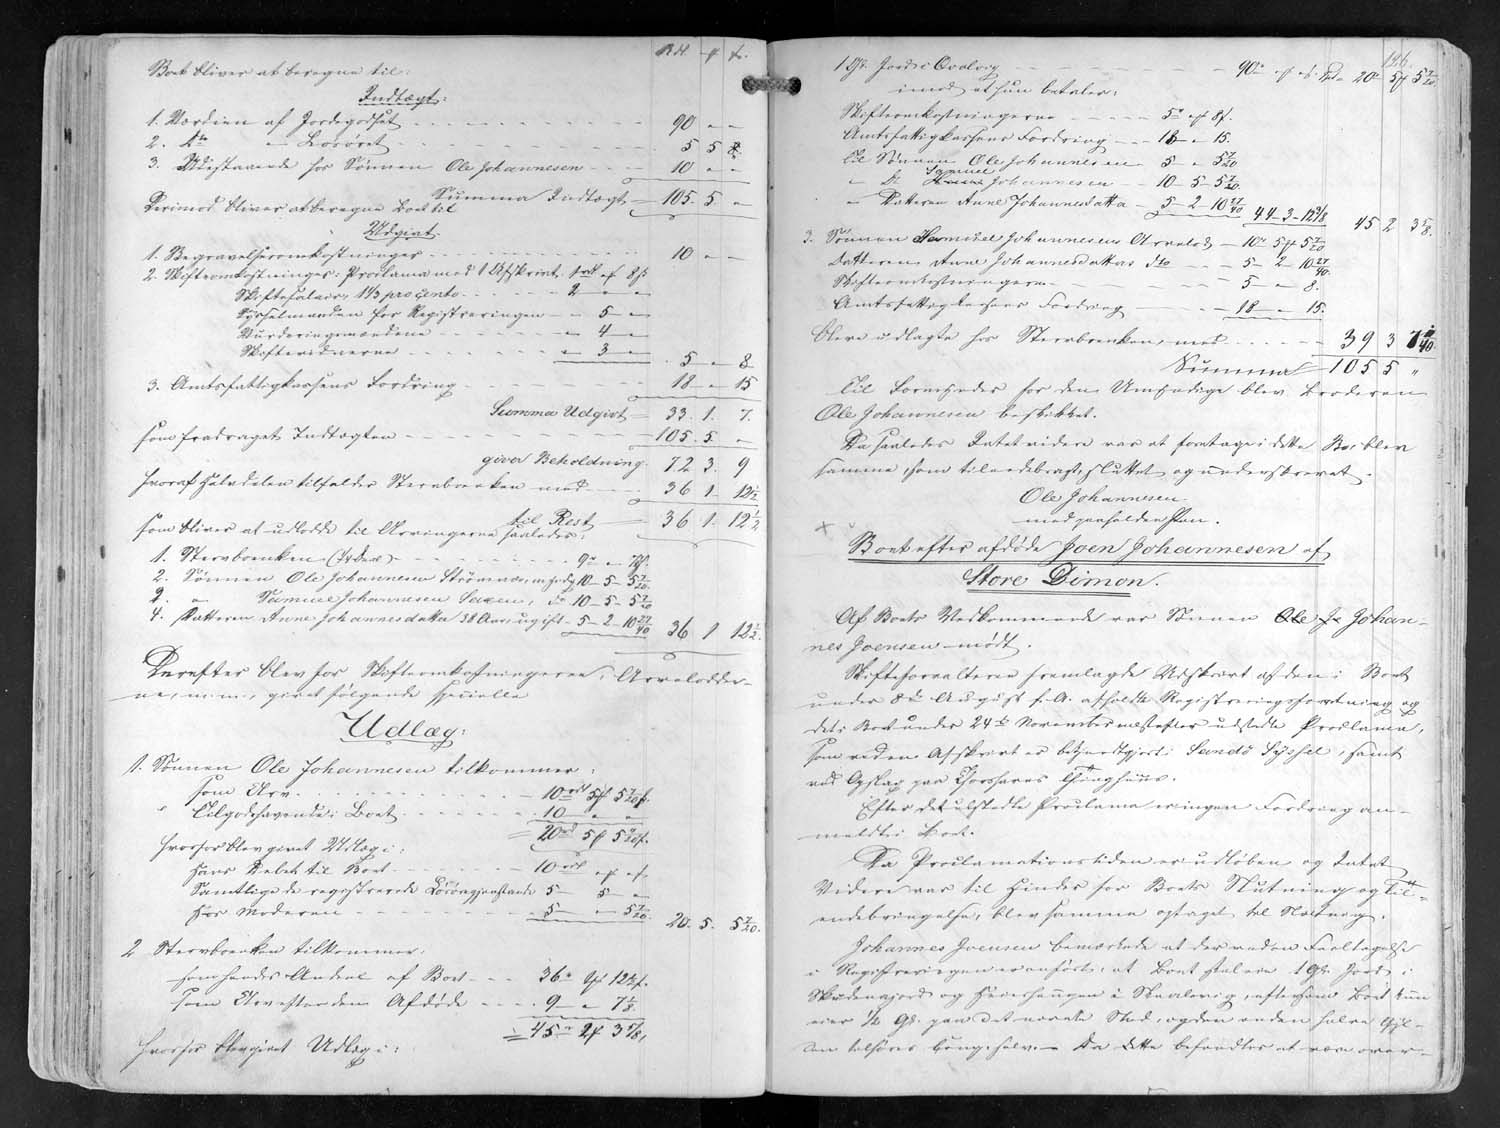 Rd. ꝭ f.
Boet bliver at beregne til:
Indtægt:
1. Værdien af Jordegodset - - - 90 - -
2. Do - Løsøret - - - 5 5 8
3. Tilstaaende hos Sønnen Ole Johannesen - - - 10 - -
Summa Indtægt 105. 5 -
Derimod bliver at beregne Boet til
Udgivt
1. Begravelsesomkostninger - - - 10 - -
2. Skifteomkostninger: Proclama med 1 Afskrivt.
Skiftesalair, 1 1/3 procento - - - 2 - -
Sysselmanden for Registreringen - - 5 -
Vurderingsmændene - - - 4 -
Skiftevidnerne - - - 3 - 5 - 8
3. Amtsfattigkassens Fordring - - - 18 - 15
Summa Udgivt = 33. 1. 7.
som fradraget Indtægten - - - 105. 5. -
giver Beholdning 72 3. 9
hvoraf Halvdelen tilfalder Stervboenken med - - - 36 1. 12 1/2
til Rest 36 1. 12 1/2
som bliver at udlodde til Arvingerne saaledes:
1. Stervboenken (1/4 Deel) - - - 9
2. Sønnen Ole Johannesen Strømnæs, myndig 10 - 5 - 5 7/20
3. - Samuel Johannesen Saxen, do 10 - 5 - 5 7/20
4. Datteren Anne Johannesdatter 38 Aar, ugift - 5 - 2 - 10 27/40 36 1 12 1/2
Derefter blev for Skifteomkostningerne, Arvelodder-
ne, m. m., givet følgende specielle
Udlæg:
1. Sønnen Ole Johannesen tilkommer:
som Arv - - - 10 5 5 7/20
" Tilgodehavende i Boet - - - 10 - -
= 20 5 5 7/20
hvorfor blev givet Udlæg i:
hans Gjeld til Boet - - - 10
Samtlige de registrerede Løsøregjenstande 5 - 5 -
hos Moderen - - - 5 - 5 7/20 20. 5. 5 7/20.
2 Stervboenken tilkommer:
hendes Andeel af Boet - - 36
som Arv efter den Afdøde - - - 9 - 7 1/8
= 45 2 3 5/8,
hvorfor blev givet Udlæg i:
126.
1 Gl. Jord i Qvalvig - - - 90 20 5 5 7/20
imod at hun betaler:
Skifteomkostningerne - - - 5 8
Amtsfattigkassens Fordring - - 18 - 15.
til Sønnen Ole Johannesen - - 5 - 5 7/20
Samuel
" Do Johannesen - - 10 - 5 - 5 7/20.
" Datteren Anne Johannesdatter - 5 - 2 - 10 27/40 44 - 3 - 12 3/8 45 2 3 5/8.
3. Sønnen Samuel Johannesens Arvelod - 10 5 5 7/20
Datteren Anne Johannesdatters do - - 5 - 2 - 10 27/40.
Skifteomkostningerne - - 5 - 8.
Amtsfattigkassens Fordring - - 18 - 15.
bleve udlagte hos Stervboenken, med - - - 39 3 7 1/40
Summa 105 5 "
Til Formynder for den Umyndige blev Broderen
Ole Johannesen beskikket.
Da saaledes Intet videre var at foretage i dette Bo, blev
samme, som tilendebragt, sluttet og underskrevet.
Ole Johannesen
med paaholden Pen.
Boet efter afdøde Joen Johannesen af
Store Dimon.
Af Boets Vedkommende var Sønnen Johan-
nes Joensen mødt.
Skifteforvalteren fremlagde Udskrivt af den i Boet
under 8de August f. A. afholdte Registreringsforretning og
det i Boet under 24de November næstefter udstedte Proclama,
som ved en Afskrivt er bekjendtgjort i Sandø Syssel, samt
ved Opslag paa Thorshavns Thinghuus.
Efter det udstedte Proclama er ingen Fordring an-
meldt i Boet.
Da Proclamationstiden er udløben og Intet
Videre var til Hinder for Boets Slutning og Til-
endebringelse, blev samme optaget til Slutning.
Johannes Joensen bemærkede at der ved en Feiltagelse
i Registreringen er anført, at Boet skal eie 1 Gl. Jord i
Skudenæsjord og Heiarhaugen i Skaalevig, eftersom Boet kun
eier 1/2 Gl. paa det nævnte Sted, og den anden halve Gyl-
den tilhører ham selv. - Da dette befandtes at være over-